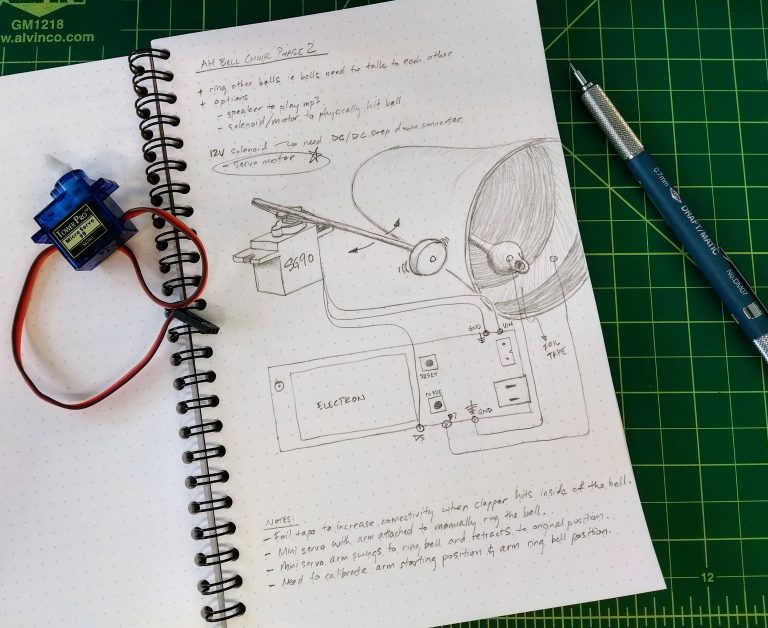 GM1218
w.alvinco.com
AH BELL CHOIR PHASE 2
+ ring other bells ie bells need to talk to each other
+ options
- speaker to play mp3
- solenoid/motor to physically hit bell
12V solenoid → need DC/DC step down converter
- servo motor
TOWER PRO
Micro Servo
SG90
GND
VIN
FOIL
TAPE
RESET
MODE
ELECTRON
GND
D5
NOTES:
- Foil tape to increase conectivity when clapper hits inside of the bell.
- Mini servo with arm attached to manually ring the bell.
- Mini servo arm swings to ring bell and retracts to original position.
- Need to calibrate arm starting position & arm ring bell position.
0.7mm
DRAFT/MATIC
No.DM07
12